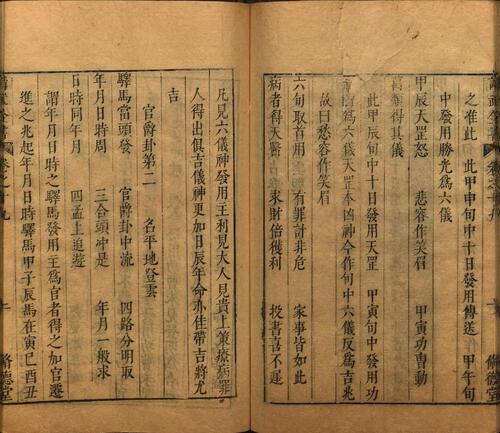 之准此 此甲申旬中十日發用傳送 甲午旬
中發用勝光為六儀
甲辰天罡怒 悲容作笑眉 甲寅功曺動
萬類得其儀
此甲辰旬中十日發用天罡 甲寅旬中發用功
曺為六儀天罡本凶神今作旬中六儀反為吉兆
故曰愁容作笑眉
六旬取首用 有罪計非危 家事皆如此
病者得天醫 求財倍獲利 投書喜不遲
凡見六儀神發用主利見大人見貴上策療病罪
人得出俱吉儀神更加日辰年命亦佳帶吉將尤
吉
官爵卦第二 名平地登雲
驛馬當頭發 官爵卦中流 四路分明取
年月日時周 三合頭冲是 年月一般求
日時同年月 四孟上追遊
謂年月日時之驛馬發用主為官者得之加官遷
進之兆起年月日時驛馬甲子辰馬在寅巳酉丑
脩德堂
卷之十九
脩德堂